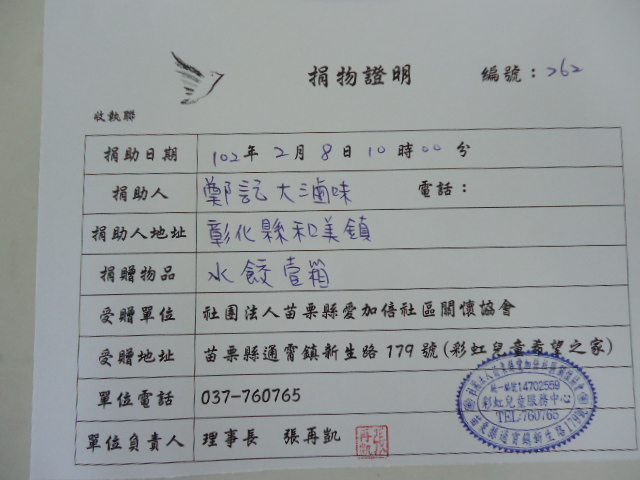 捐物證明 編號：262
收執聯
捐助日期 102年2月8日10時00分
捐助人 鄭記大滷味 電話：
捐助人地址 彰化縣和美鎮
捐贈物品 水餃壹箱
受贈單位 社團法人苗栗縣愛加倍社區關懷協會
受贈地址 苗栗縣通霄鎮新生路179號(彩虹兒童希望之家)
單位電話 037-760765
單位負責人 理事長 張再凱
張再凱
社團法人苗栗縣愛加倍社區關懷協會
統一編號14702559
彩虹兒童服務中心
TEL:760765
苗栗縣通霄鎮新生路179號